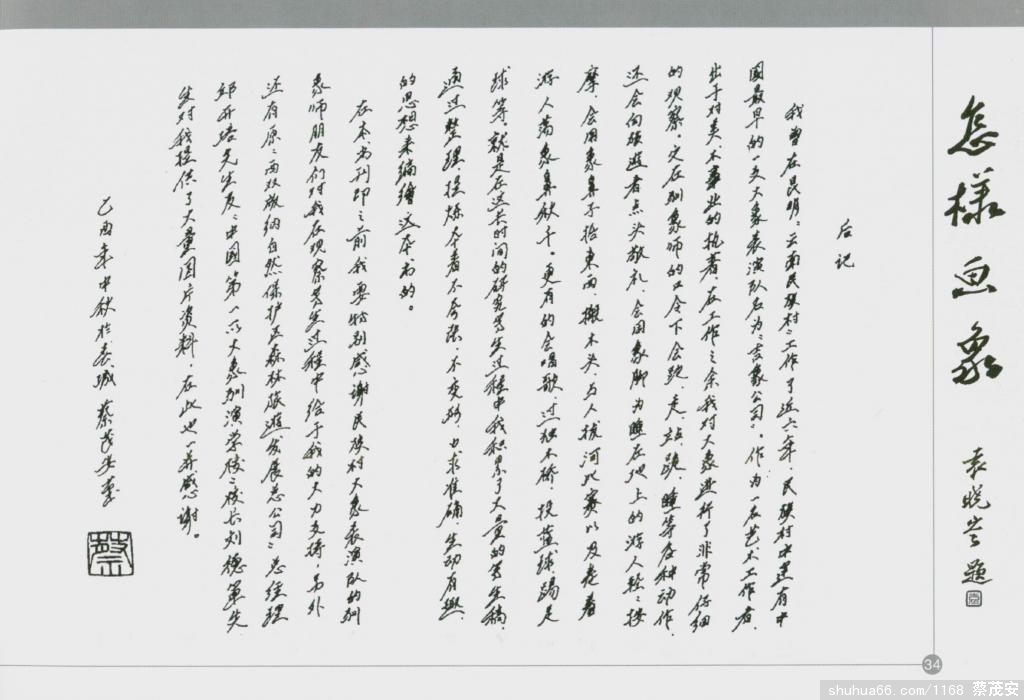 怎样画象
袁晓岑题
后记
我曾在昆明“云南民族村”工作了近六年，民族村中建有中
国最早的一支大象表演队名为“吉象公司”。作为一名艺术工作者，
出于对美术事业的执著，在工作之余我对大象进行了非常仔细
的观察。它在驯象师的口令下会跑、走、站、跪、睡等各种动作，
还会向旅游者点头敬礼、会用象脚为睡在地上的游人轻轻按
摩、会用象鼻子拾东西、搬木头、与人拔河比赛以及卷着
游人荡象鼻秋千。更有的会唱歌、过独木桥、投蓝球、踢足
球等，就是在这长时间的研究写生过程中我积累了大量的写生稿，
通过整理、提炼本着不夸张、不变形、力求准确、生动有趣
的思想来编绘这本书的。
在本书刊印之前我要特别感谢民族村大象表演队的驯
象师朋友们对我在观察写生过程中给予我的大力支持，另外
还有原“西双版纳自然保护区森林旅游发展总公司”总经理
邹开塔先生及“中国第一所大象驯演学校”校长刘德军先
生对我提供了大量图片资料，在此也一并感谢。
乙酉年中秋於春城 蔡茂安画
蔡
34
shuhua66.com/1168 蔡茂安